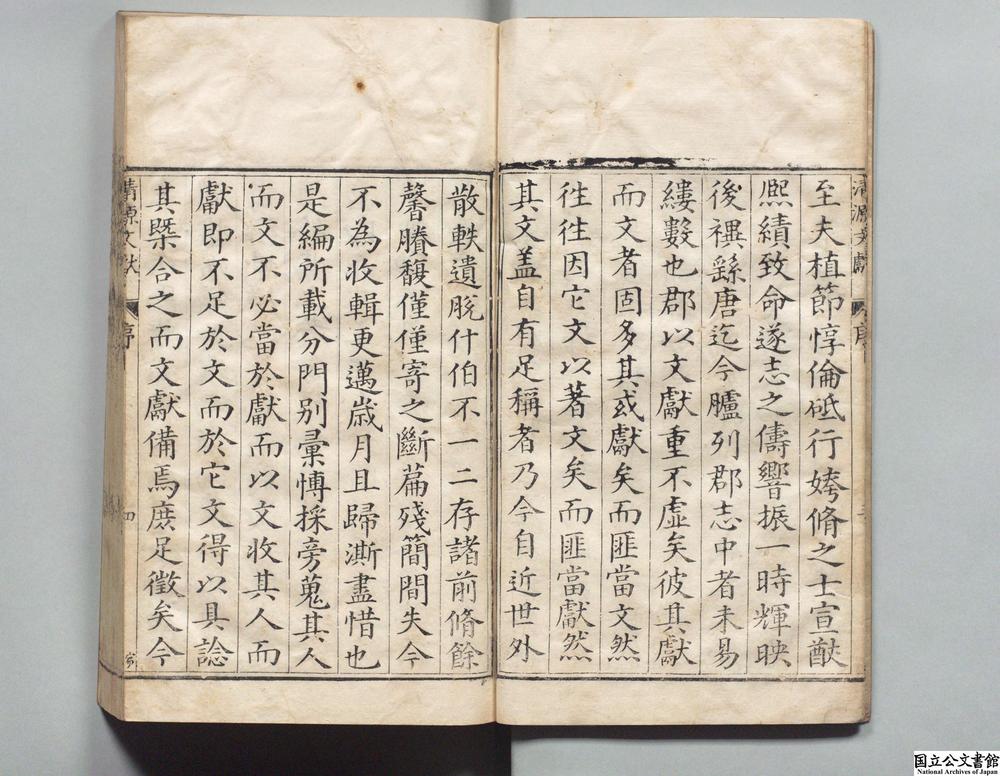 清源文獻
序
至夫植節惇倫砥行姱脩之士宣猷
熈績致命遂志之儔響振一時輝映
後禩繇唐迄今臚列郡志中者未易
縷數也郡以文獻重不虛矣彼其獻
而文者固多其或獻矣而匪當文然
徃徃因它文以著文矣而匪當獻然
其文盖自有足稱者乃今自近世外
散軼遺脫什伯不一二存諸前脩餘
馨賸馥僅僅寄之斷篇殘簡間失今
不為收輯更邁歳月且歸澌盡惜也
是編所載分門別彙愽採旁蒐其人
而文不必當於獻而以文收其人而
獻即不足於文而於它文得以具諗
其槩合之而文獻備焉庶足徵矣今
清源文獻
序
四
国立公文書館
National Archives of Japan